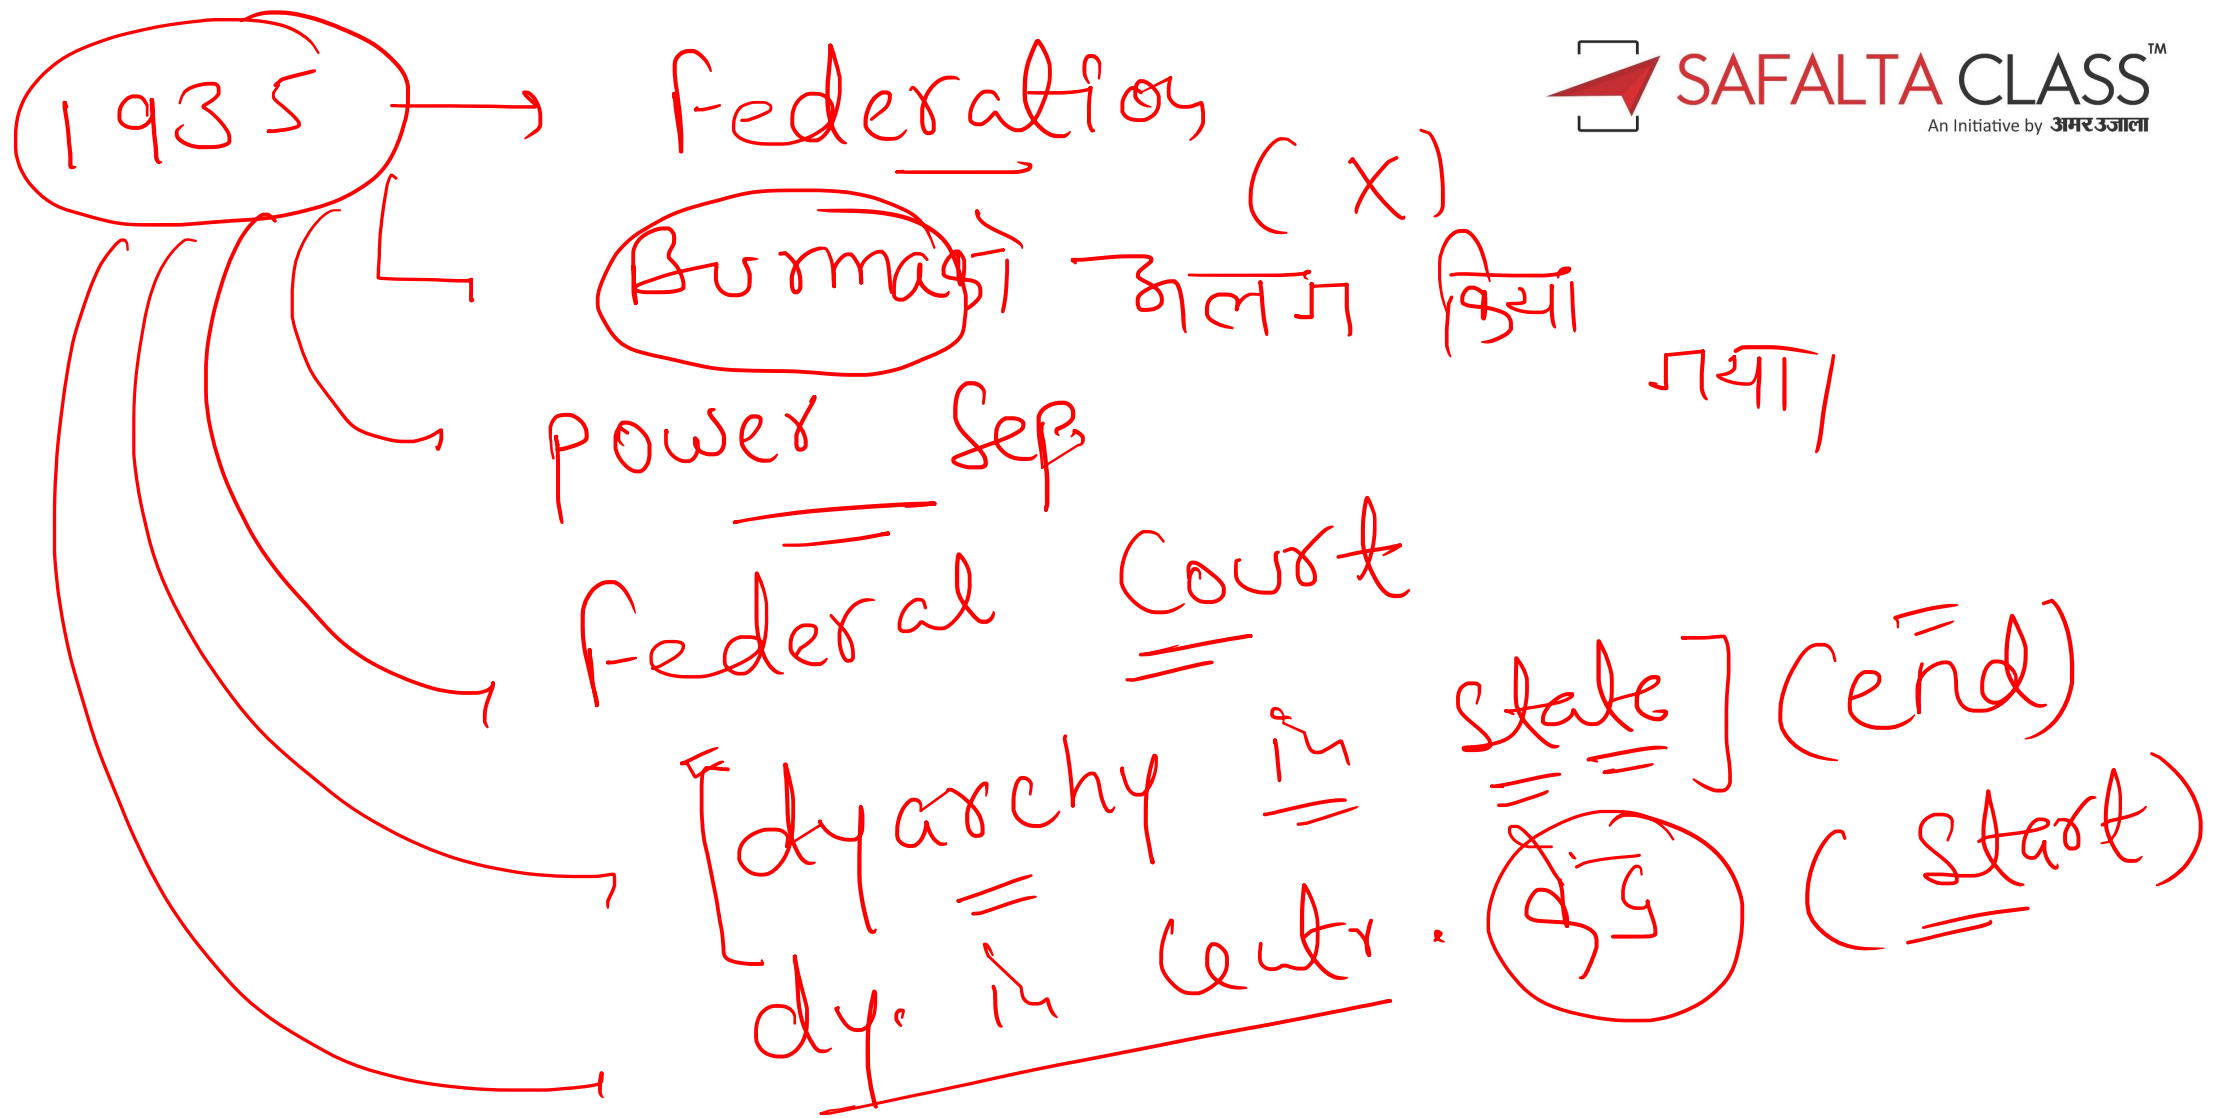 SAFALTA CLASS™
An Initiative by अमर उजाला
1935 → Federation
(X)
Burma को अलग किया
गया।
Power Sep.
Federal Court
dyarchy in State] (end)
dy. in Centr. केंद्र (Start)